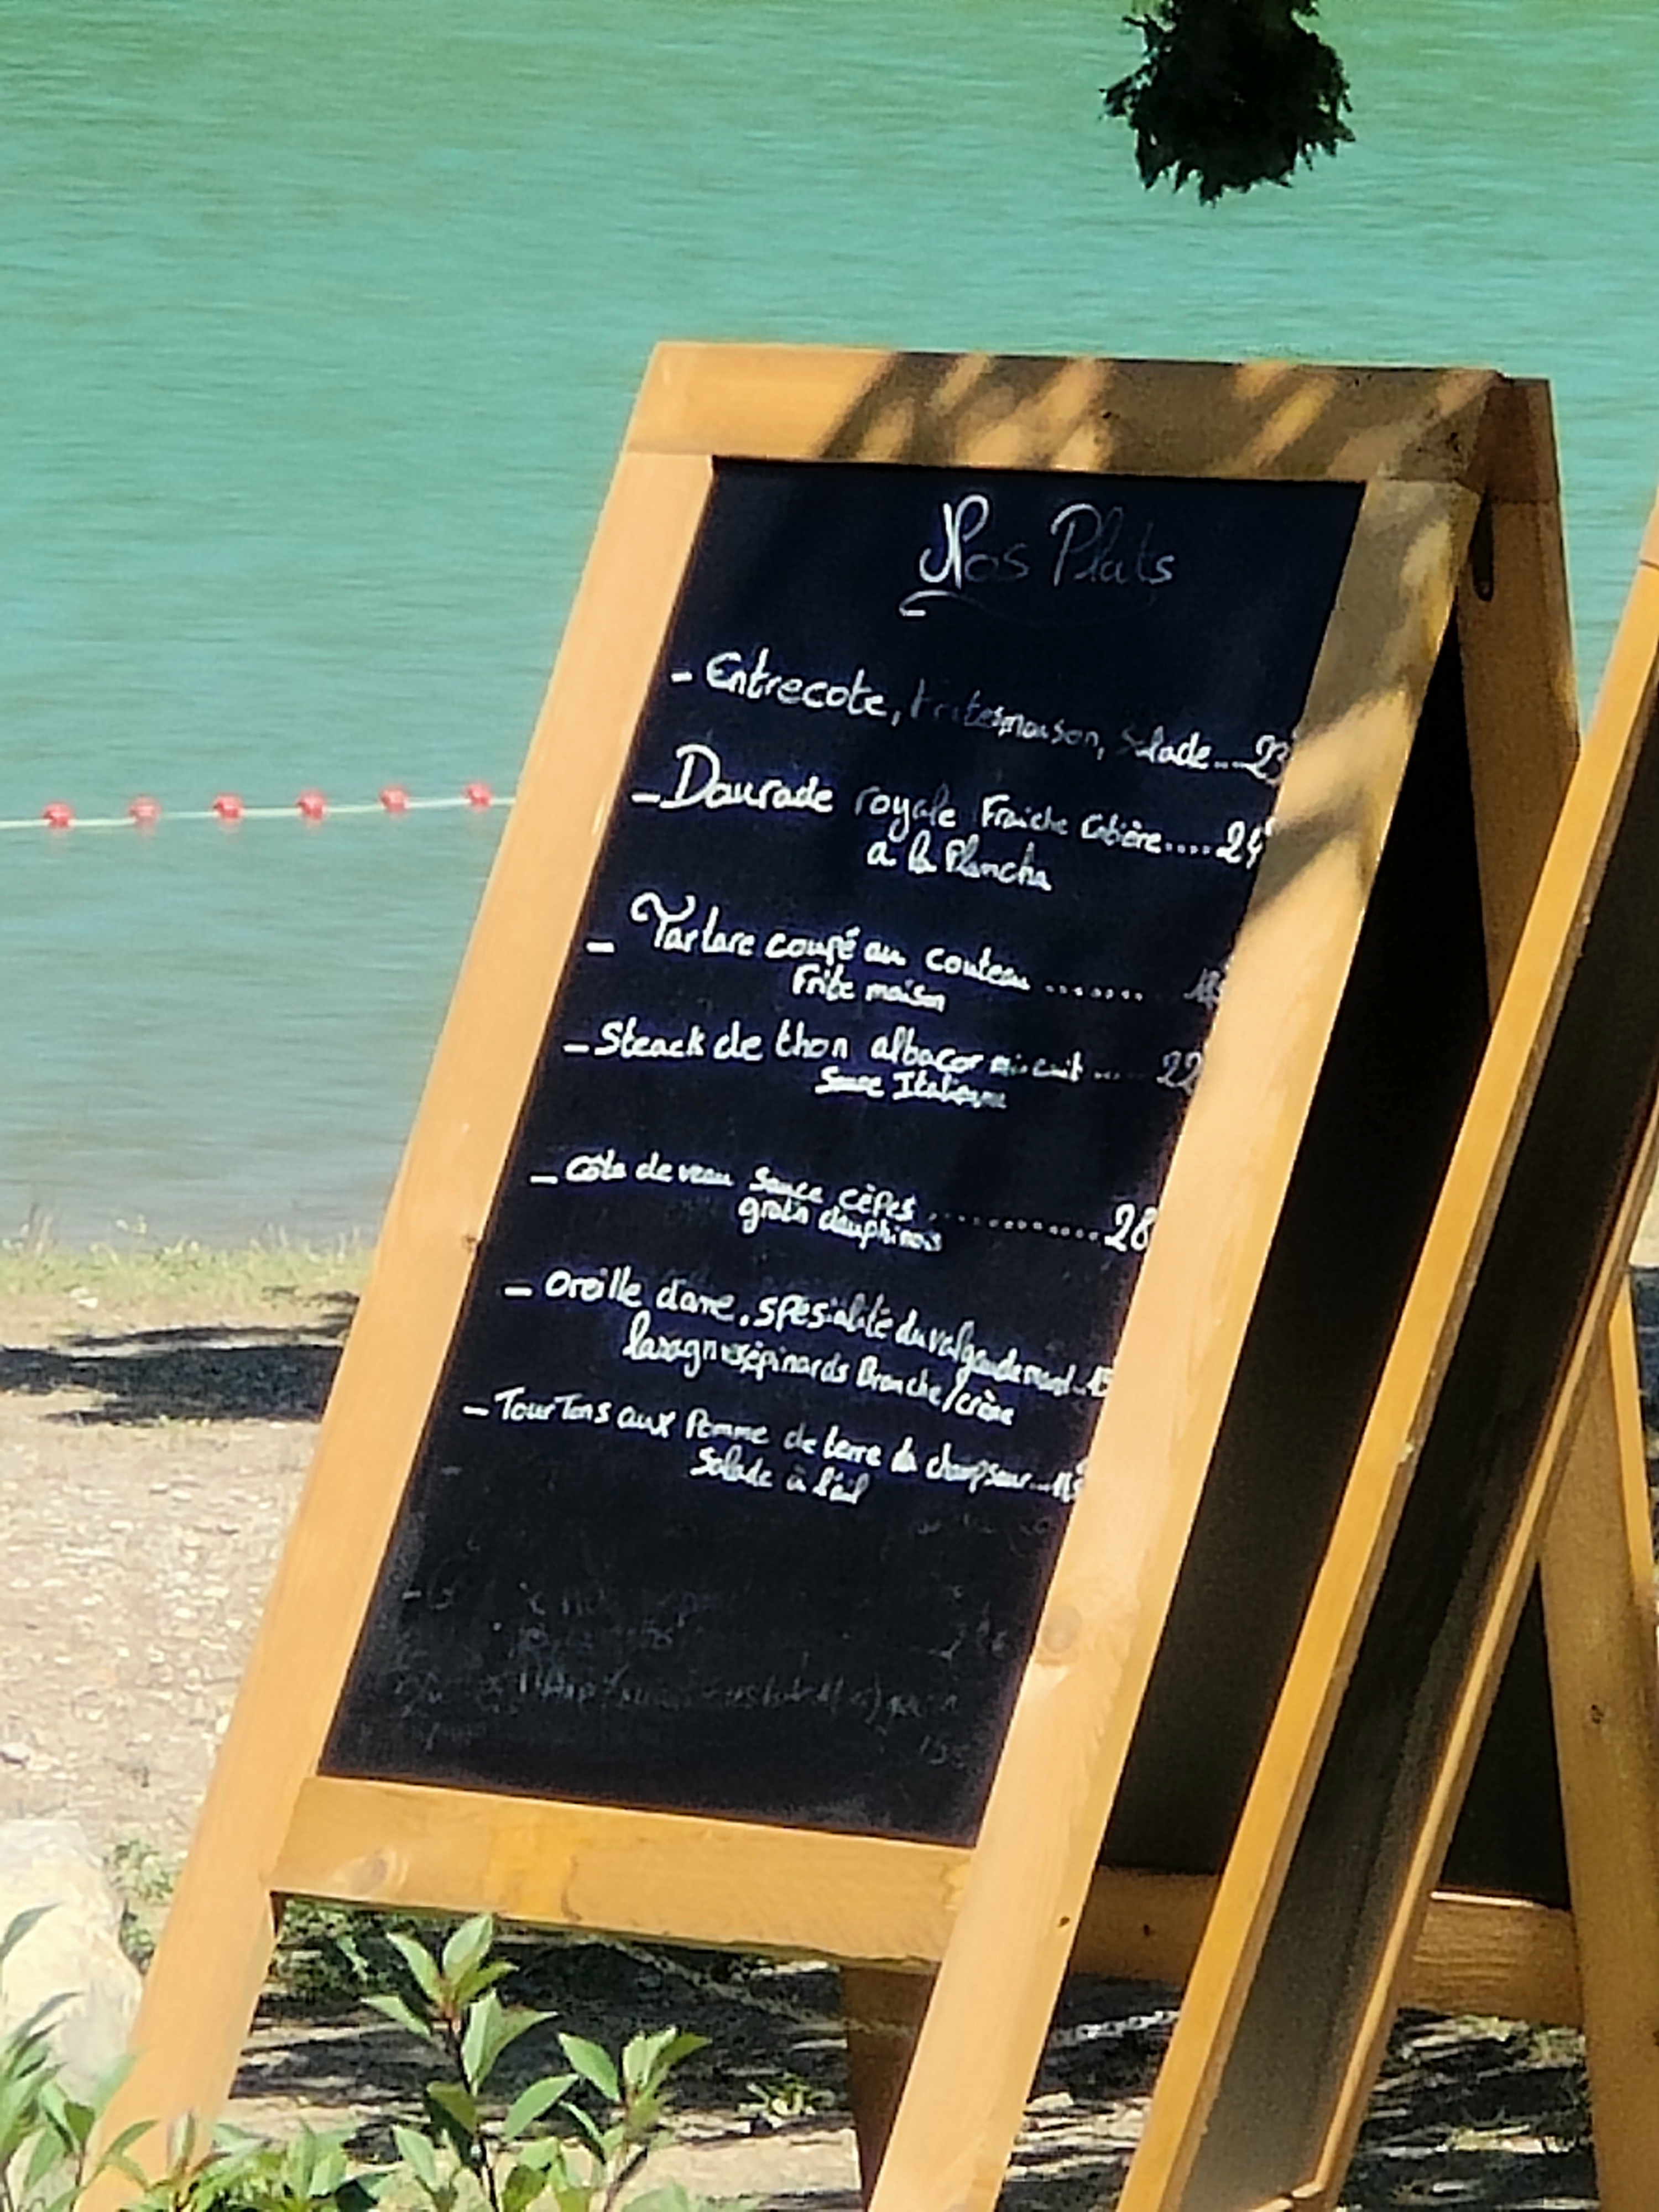 Nos Plats
- Entrecote, Frites maison, Salade....23
- Daurade royale Fraiche Entière.....24€
a la Plancha
- Tartare coupé au couteau ........
Frite maison
- Steack de thon albacor mi-cuit .... 22
Sauce Italienne
- Côte de veau Sauce cèpes ..............28
gratin dauphinois
- Oreille d'ane, spésialité du valgaudemard..15
lasagnes épinards Branche/crème
- TourTons aux Pomme de terre du champsaur...
Salade à l'ail